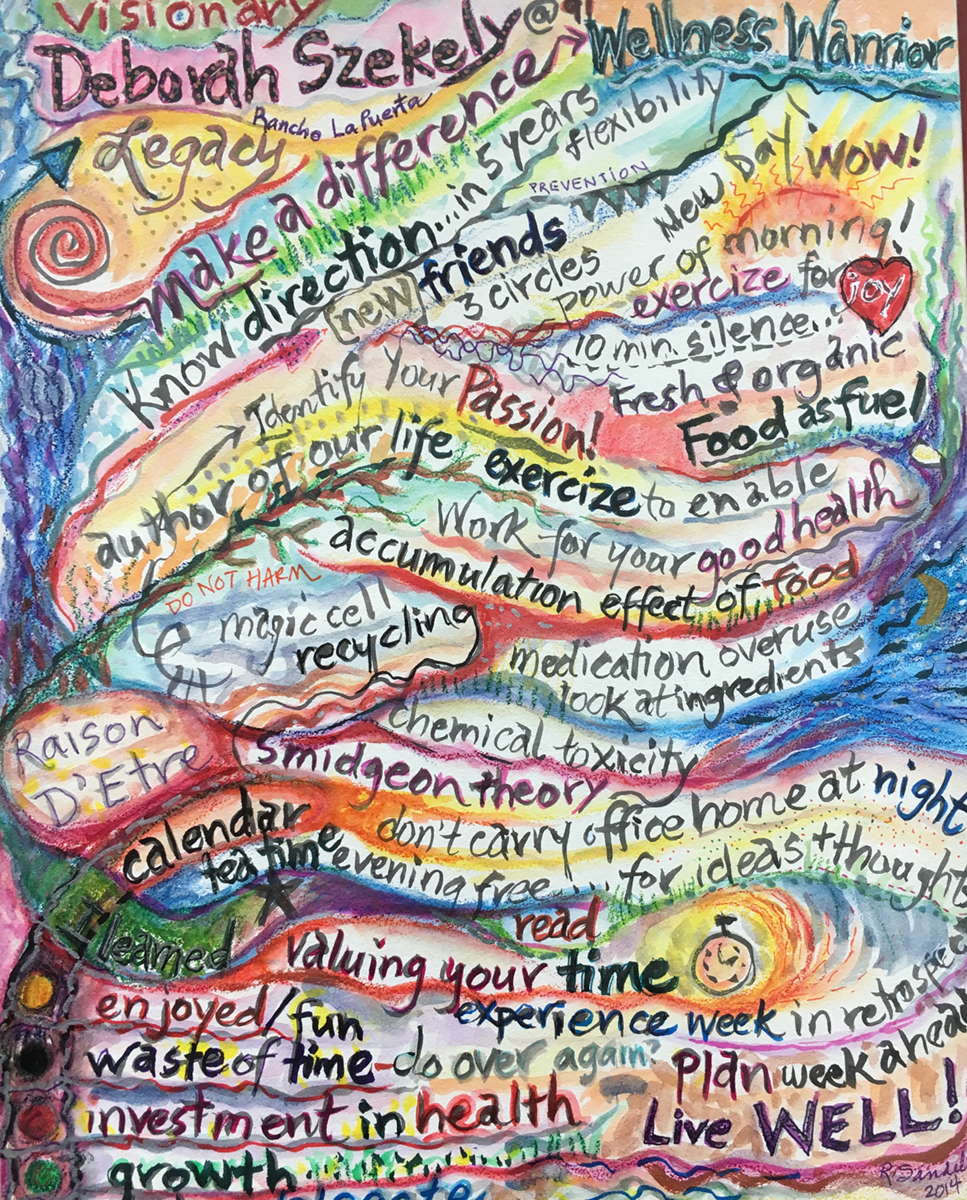 visionary
Deborah Szekely @91
Wellness Warrior
Legacy
Rancho La Puerta
make a difference
Know direction...in 5 years
flexibility
PREVENTION
new friends
3 circles
New Day! wow!
power of morning!
exercize for joy
10 min. silence...
Fresh & organic
Food as fuel
Identify Your Passion!
author of our life
exercize to enable
Work for your good health
accumulation effect of food
DO NOT HARM
magic cell
recycling
medication overuse
look at ingredients
chemical toxicity
Raison
D'Etre
smidgeon theory
calendar
don't carry office home at night
tea time evening free..... for ideas + thoughts
I learned
read
valuing your time
enjoyed/fun
experience week in retrospect
waste of time - do over again?
Plan week ahead
investment in health
Live WELL!
growth
R. Sandel
2014